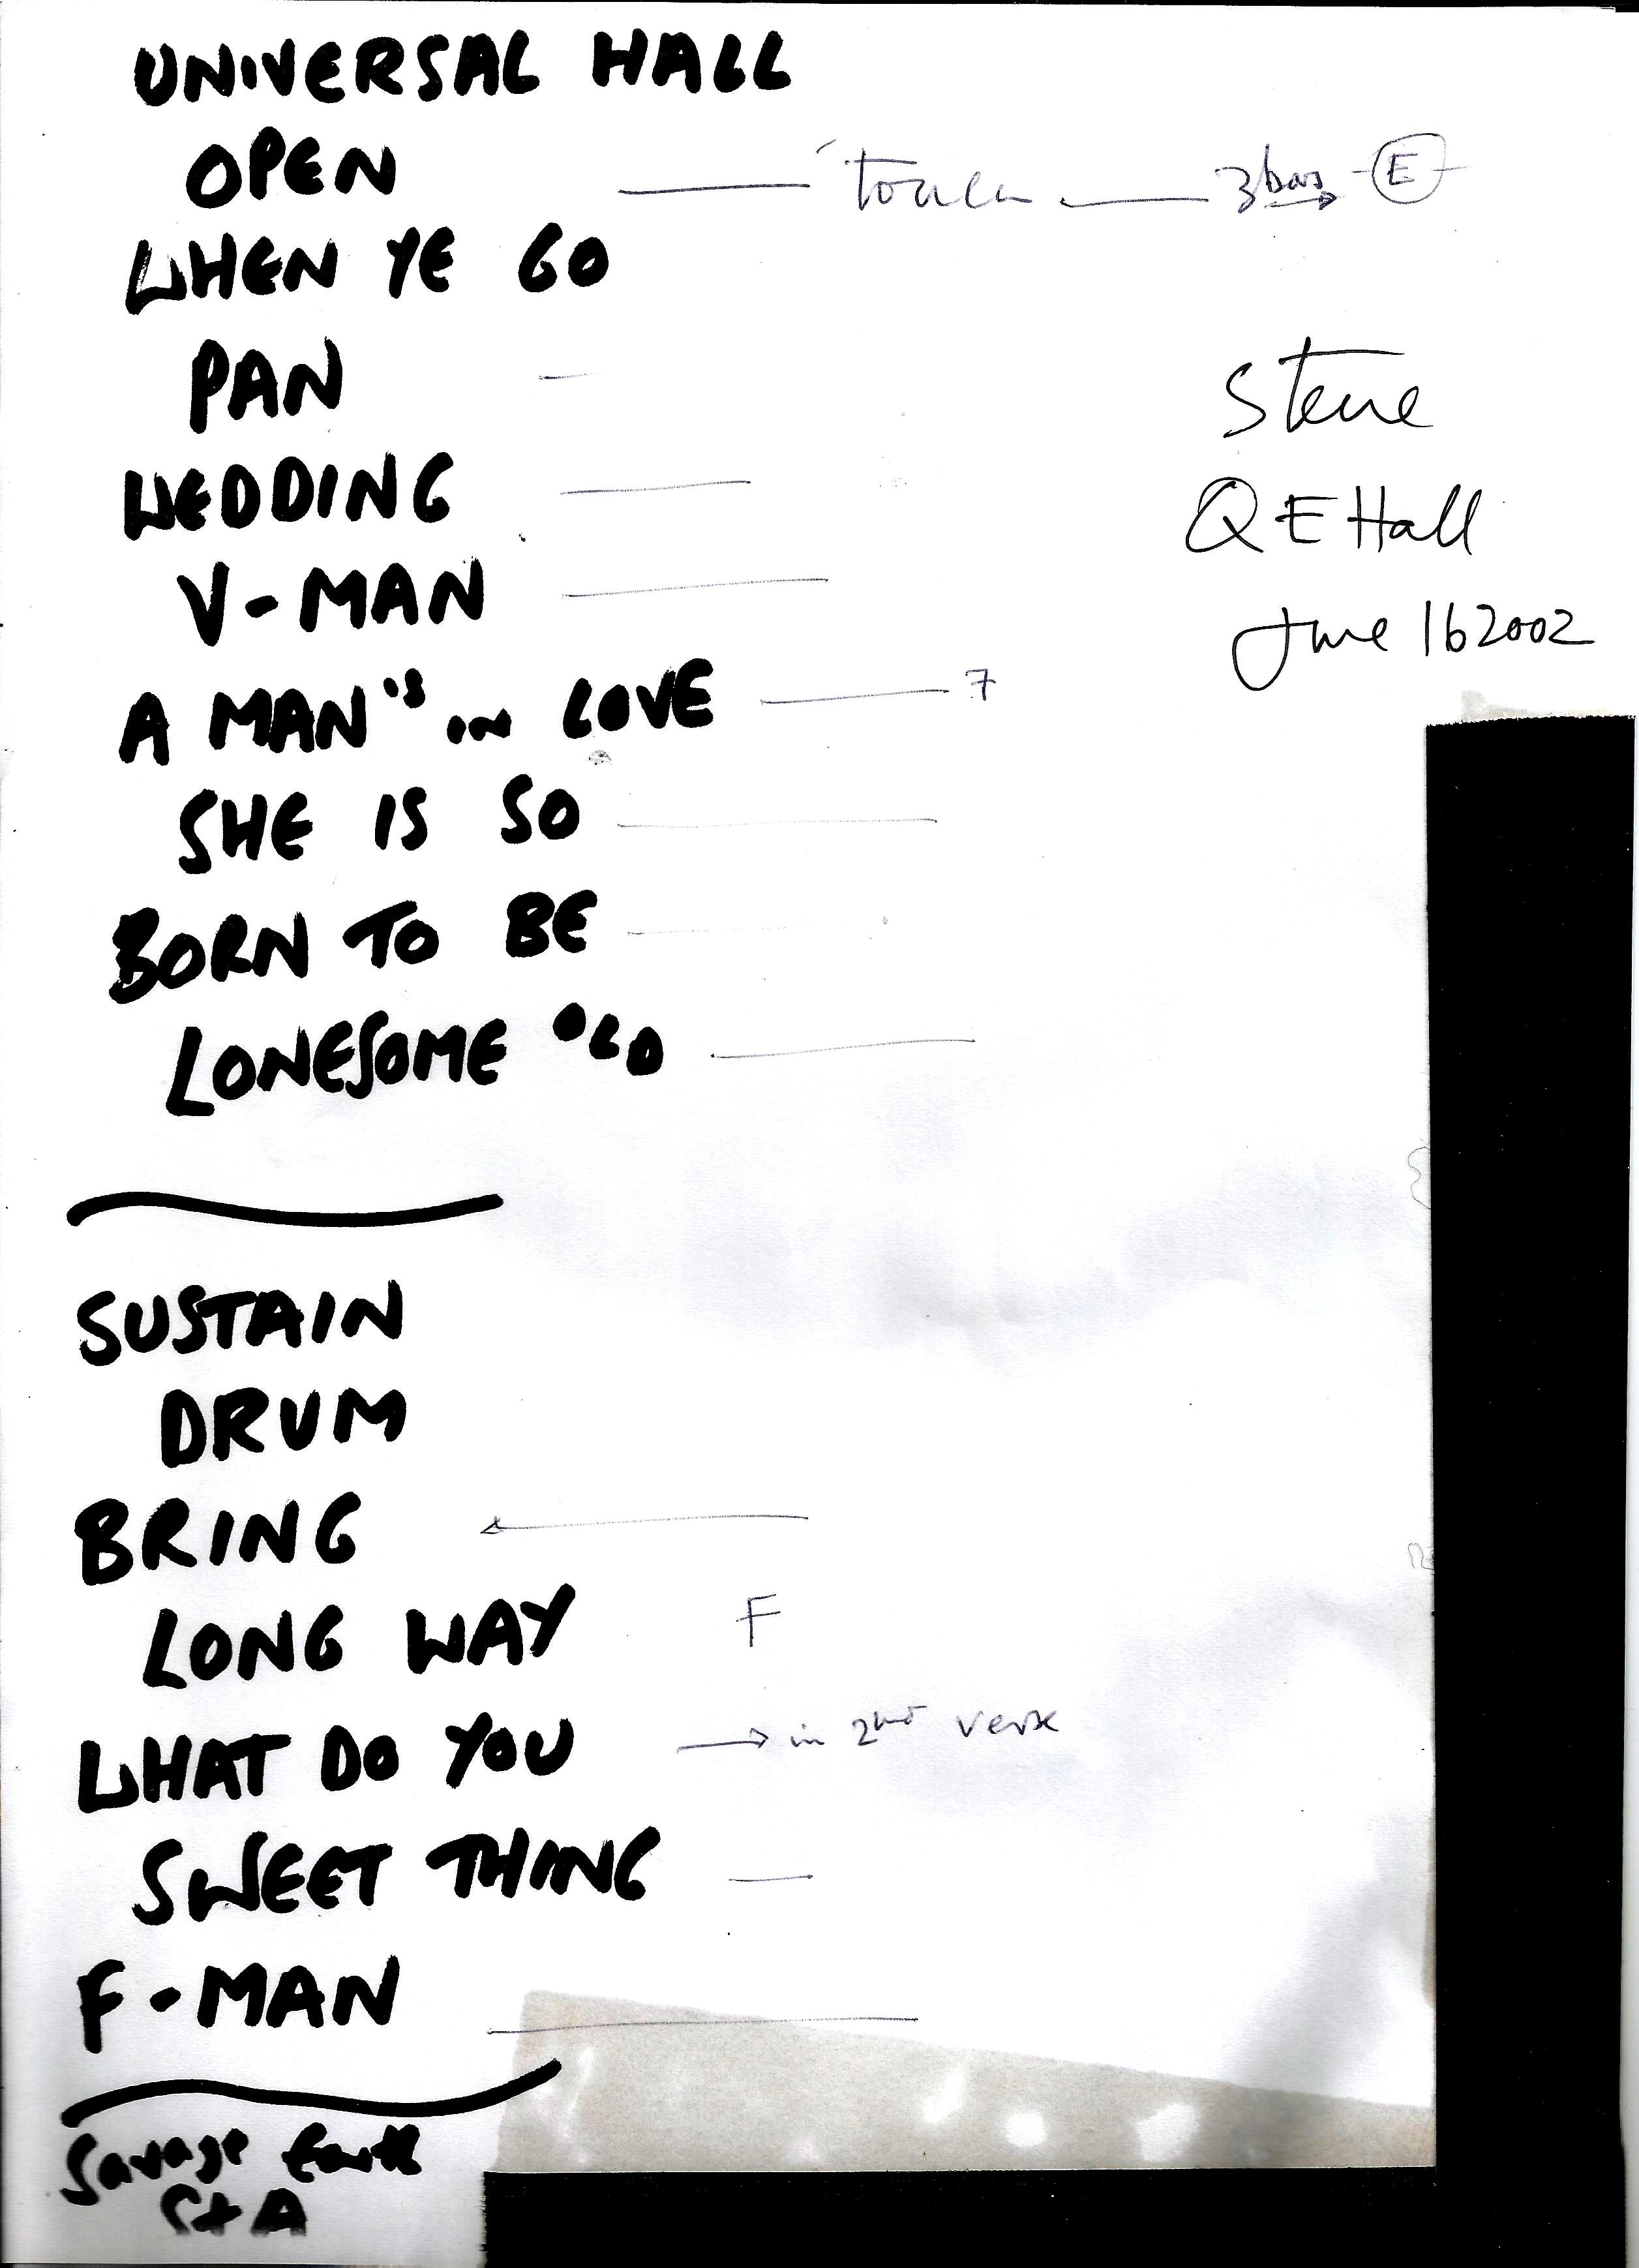 UNIVERSAL HALL
OPEN touch 3 bars E
WHEN YE GO
PAN
Steve
WEDDING
Q E Hall
V-MAN
June 16 2002
A MAN IS IN LOVE 7
SHE IS SO
BORN TO BE
LONESOME OLD
SUSTAIN
DRUM
BRING
LONG WAY F
WHAT DO YOU in 2nd verse
SWEET THING
F-MAN
Savage Earth